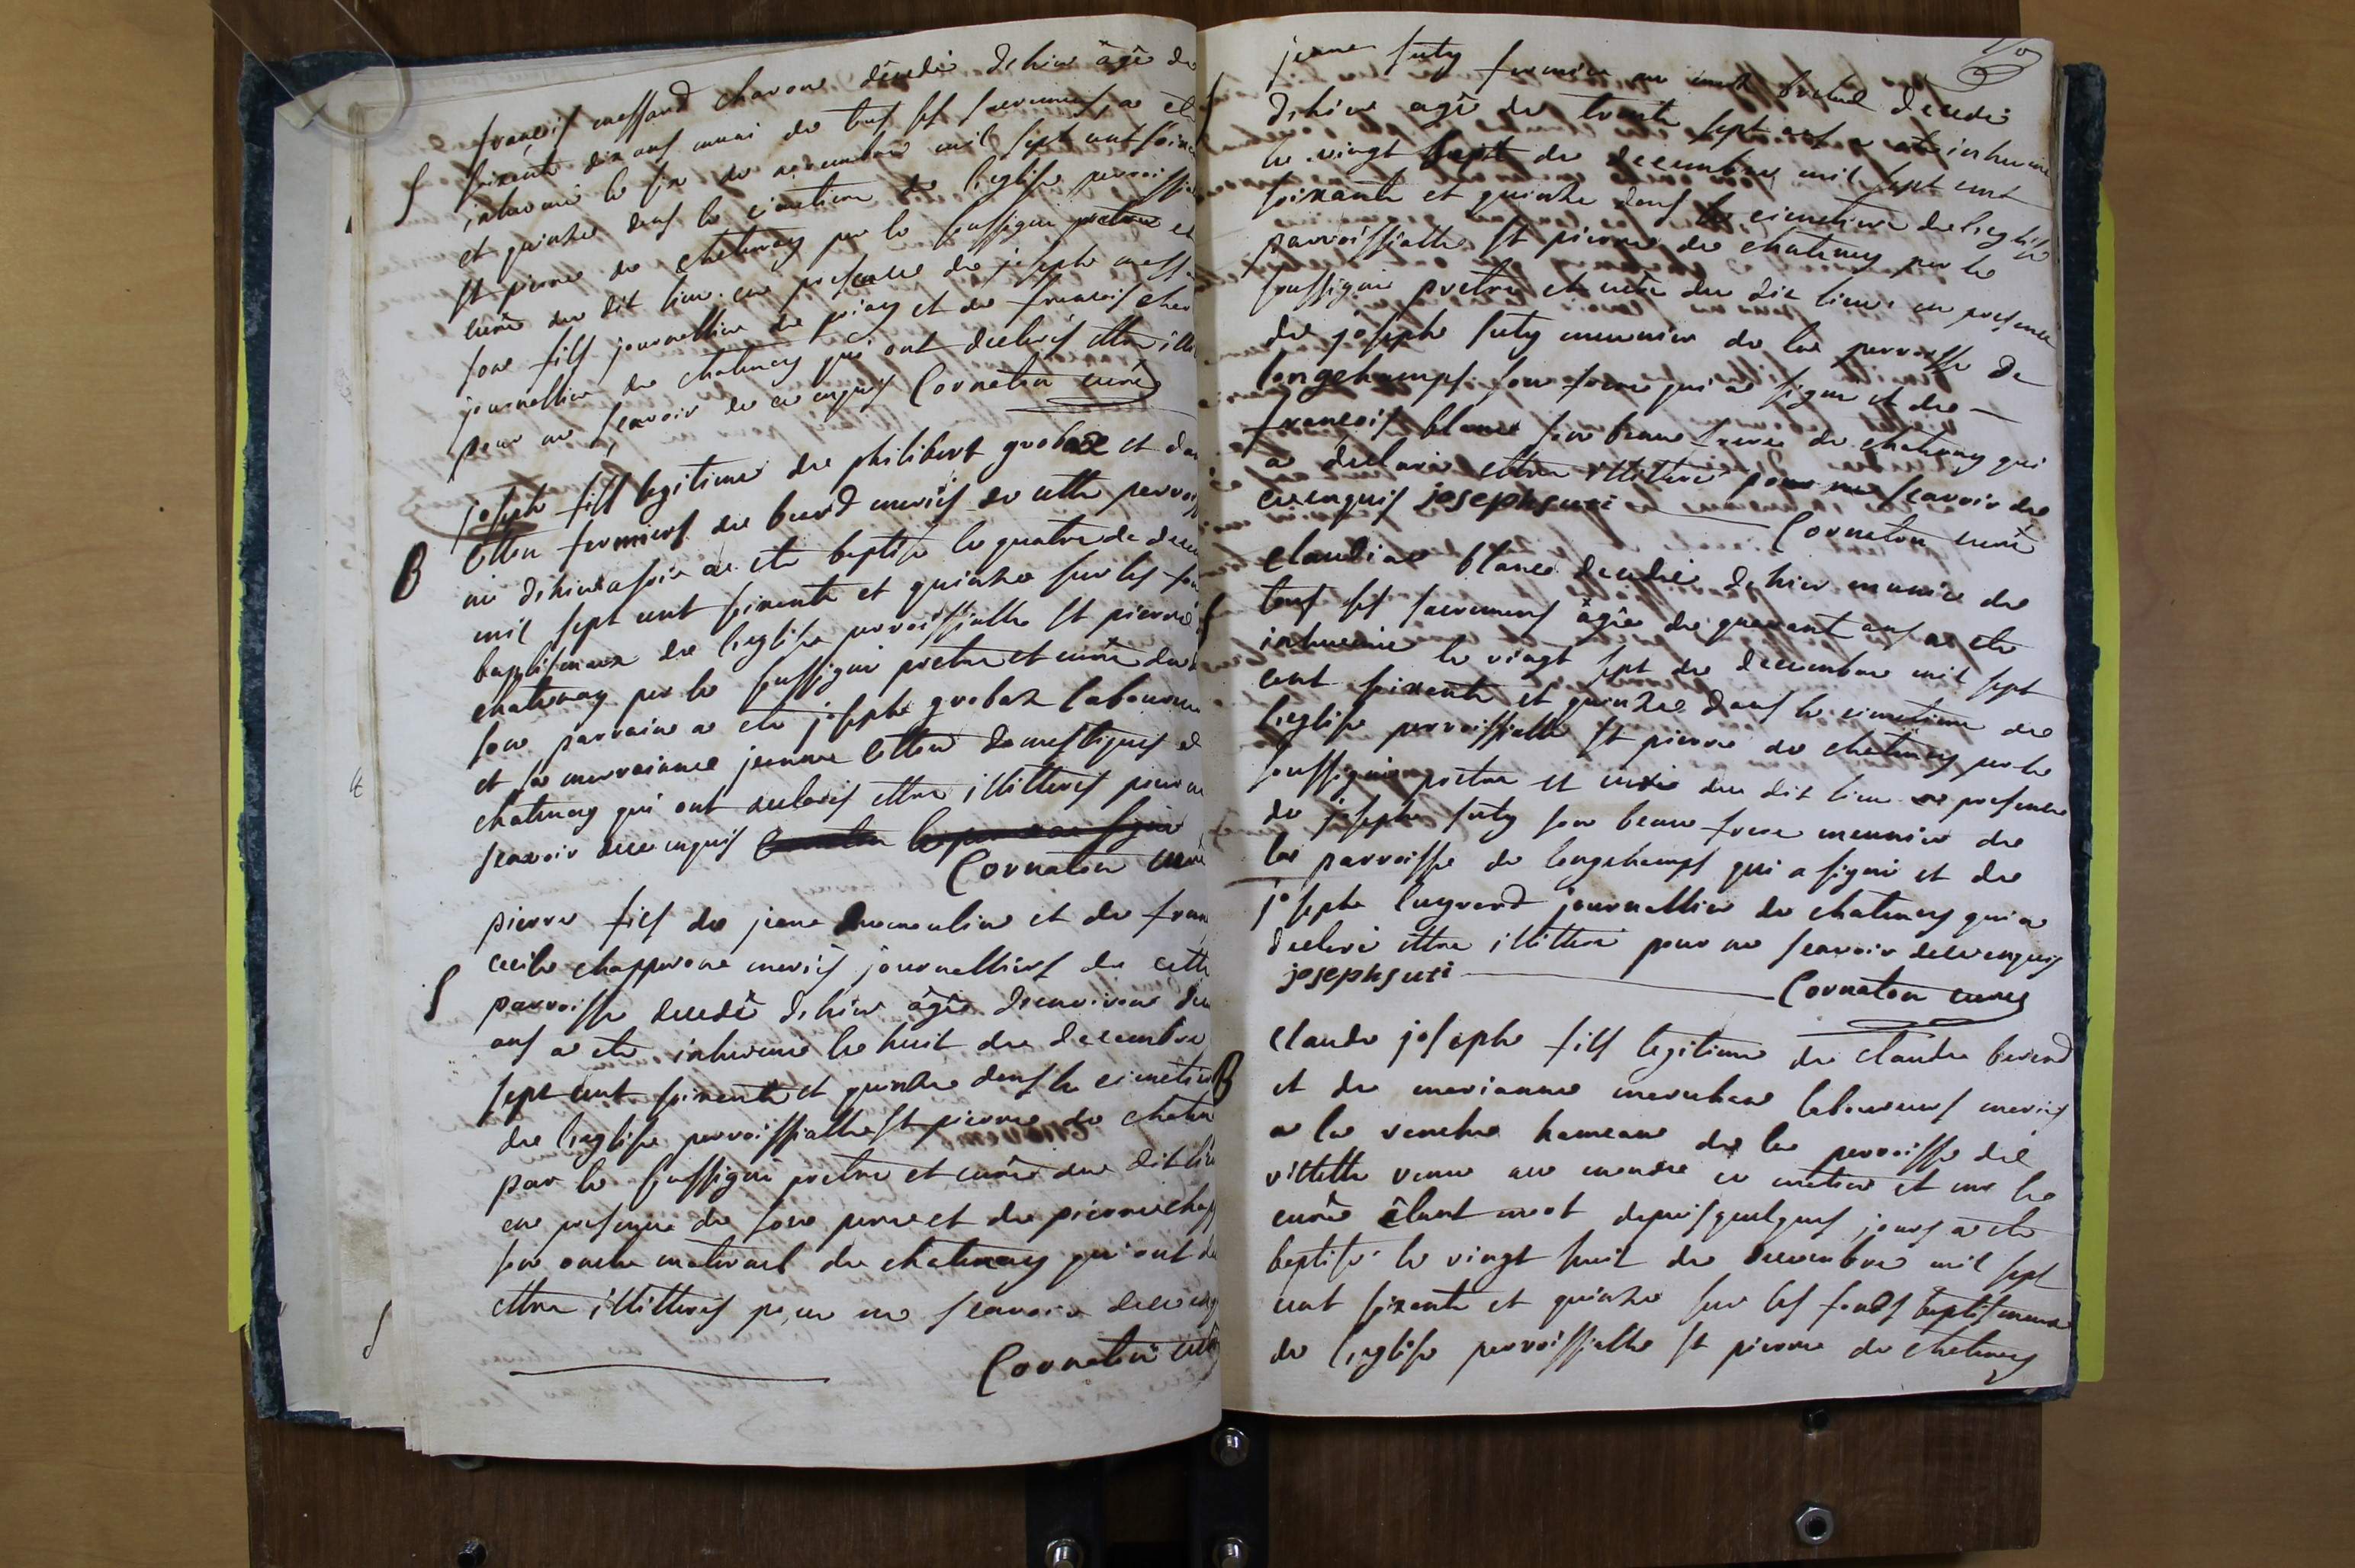 françois massard charon décedé dehier âgé de
S
soixente dix ans muni de tous ses sacremens a eté
inhumé le six de novembre mil sept cent soixe
et quinze dans le cimetiere de l'eglise parroissial
st pierre de chatenay par le soussigné pretre et
curé du dit lieu en presence de joseph mass
son fils journallier de
et de francois cha
journallier de chatenay qui ont declarés ettre illi
pour ne scavoir de ce enquis Cornaton curé
B
joseph fils legitime de philibert grobaz et de
fermiers de
mariés de cette parroiss
né dihier a soir a ete baptisé le quatre de decem
mil sept cent soixente et quinze sur les fon
baptismaux de l'eglise parroissialle st pierre
chatenay par le soussigné pretre et curé du
son parrain a ete joseph grobaz laboureu
et sa marrainne jeanne
domestiques de
chatenay qui ont declarés ettre illitterés pour ne
scavoir de ce enquis
Cornaton curé
pierre fils de jean dumoulin et de fran
cecile chapperon mariés journalliers de cette
S
parroisse decedé dehier âgé denviron
ans a ete inhumé le huit de decembre
sept cent soixente et quinze dans le cimetier
de l'eglise parroissialle st pierre de chaten
par le soussigné pretre et curé du dit lieu
en presence de son pere et de pierre chap
son oncle maternel de chatenay qui ont de
ettre illitterés pour ne scavoir de ce enq
Cornaton curé
jean suty fermier au
decedé
S
dehier agé de trente sept ans a ete inhumé
le vingt sept de decembre mil sept cent
soixante et quinze dans le cimetiere de l'eglise
parroissialle st pierre de chatenay par le
soussigné pretre et curé du dit lieu en presence
de joseph suty meunier de la parroisse de
longchamps son frere qui a signé et de
francois blanc son beau frere de chatenay qui
a declaré ettre illitteré pour ne scavoir de
ce enquis josephsuti
Cornaton curé
claudine blanc decedée dehier munie de
S
tous ses sacremens âgée de quarant ans a ete
inhumée le vingt sept de decembre mil sept
cent soixente et quinze dans le cimetiere de
l'eglise parroissialle st pierre de chatenay par le
soussigné pretre et curé du dit lieu en presence
de joseph suty son beau frere meunier de
la parroisse de longchamps qui a signé et de
joseph
journallier de chatenay qui a
declaré ettre illitteré pour ne scavoir de ce enquis
josephsuti
Cornaton curé
B
claude joseph fils legitime de claude
et de marianne
laboureurs mariés
a la
hameau de la parroisse de
villette venu au monde
et le
curé étant mort depuis quelques jours a ete
baptisé le vingt huit de decembre mil sept
cent soixente et quinze sur les fonds baptismaux
de l'eglise parroissialle st pierre de chatenay